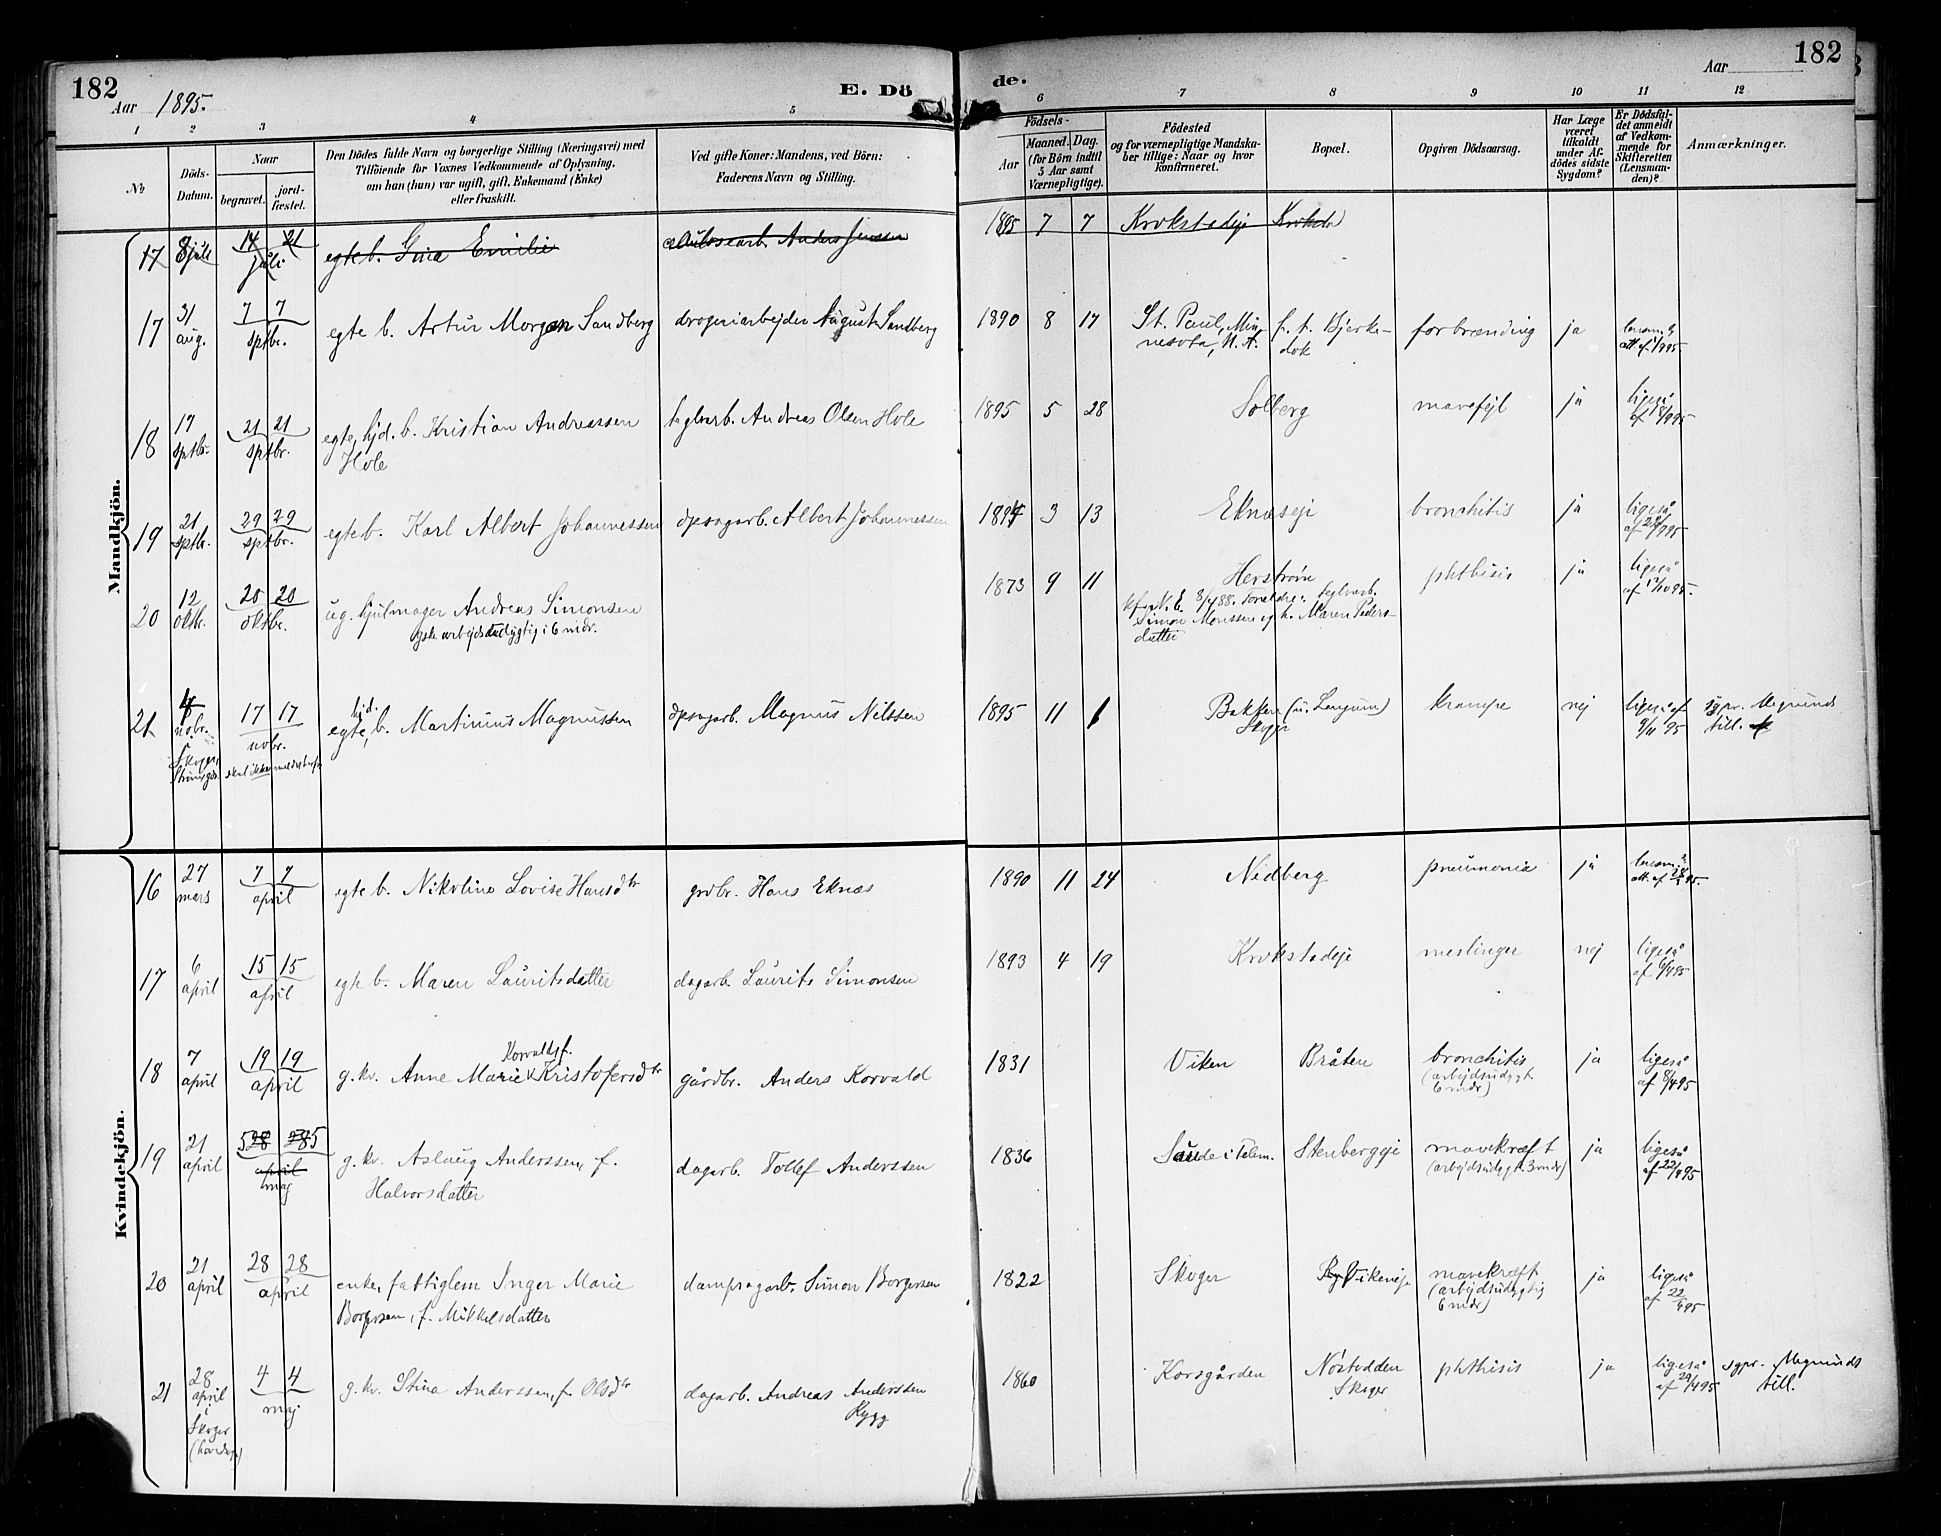 182
Aar 1895.
E. Dö
de.
Aar
182
1 2 3 4 5 6 7 8 9 10 11 12
No
Döds-
Datum.
Naar
begravet.
jord-
fæstet.
Den Dödes fulde Navn og borgerlige Stilling (Næringsvei) med
Tilföiende for Voxnes Vedkommende af Oplysning,
om han (hun) var ugift, gift, Enkemand (Enke)
eller fraskilt.
Ved gifte Koner: Mandens, ved Börn:
Faderens Navn og Stilling.
Födsels-
Aar
Maaned. Dag.
(for Börn indtil
5 Aar samt
Værnepligtige).
Födested
og for værnepligtige Mandska-
ber tillige: Naar og hvor
konfirmeret.
Bopæl.
Opgiven Dödsaarsag.
Har Læge
været
tilkaldt
under Af-
dödes sidste
Sygdom?
Er Dödsfal-
det anmeldt
af Vedkom-
mende for
Skifteretten
(Lensman-
den)?
Anmærkninger.
Mandkjön.
17 8 juli 14 21 juli egte b. Gina Emilie Anders Jenssen 1895 7 7 Krokstadeje
17 31 aug. 7 7 sptbr. egte b. Artur Morgan Sandberg drogeriarbejder August Sandberg 1890 8 17 St. Paul, Min-
nesota, N. A. f. t. Hjerke-
dok forbrænding ja
18 17 sptbr. 21 21 sptbr. egte, hjd. b. Kristian Andreassen
Hole teglverb. Andreas Olsen Hole 1895 5 28 Solberg mavefejl ja ligeså
19 21 sptbr. 29 29 sptbr. egte b. Karl Albert Johannessen dpsagarb. Albert Johannessen 1894 3 13 Eknæseje bronchitis ja ligeså
20 12 oktbr. 20 20 oktbr. ug. hjulmager Andreas Simonsen
i 6 mdr. 1873 9 11 Herstrøm
Simon Monssen og h. Maren Peders-
datter phthisis ja ligeså
21 nobr. 17 17 nobr. egte, hjd. b. Martinius Magnussen dpsagarb. Magnus Nilssen 1895 11 Bakken
Skoger krampe nej ligeså af
9/11 95 sgpr. Megrunds
till.
Kvindekjön.
16 27 mars 7 7 april egte b. Nikoline Lovise Hansdtr grdbr. Hans Eknæs 1890 11 24 Nidberg pneumonia ja
17 6 april 15 15 april egte b. Maren Lauritsdatter dagarb. Laurits Simonsen 1893 4 19 Krokstadeje meslinger nej ligeså
af 6/4 95
18 7 april 19 19 april g. kv. Anne Marie Korvald f. Kristofersdtr gårdbr. Anders Korvald 1831 Viken Bråten bronchitis
(arbejdsudygt.
6 mdr) ja ligeså
af 8/4 95
19 21 april 5 28 28 5 april
maj g. kv. Aslaug Anderssen, f.
Halvorsdatter dagarb. Tollef Anderssen 1836 Saude i Telem. Stenbergeje mavekræft
(arbejdsudygt. 3 mdr) ja ligeså
af 22/4 95
20 21 april 28 28 april enke, fattiglem Inger Marie
Borgersen, f. Mikkelsdatter dampsagarb. Simon Borgersen 1822 Skoger Vikeneje mavekræft
(arbejdsudygtig
6 mdr) ja ligeså
af 22/4 95
21 28 april
i
Skoger 4 4 maj g. kv. Stina Anderssen, f. Olsdtr dagarb. Andreas Anderssen
Kygg 1860 Korsgården Nøstodden
Skoger phthisis ja ligeså
af 29/4 95 sgpr. Megrunds
till.